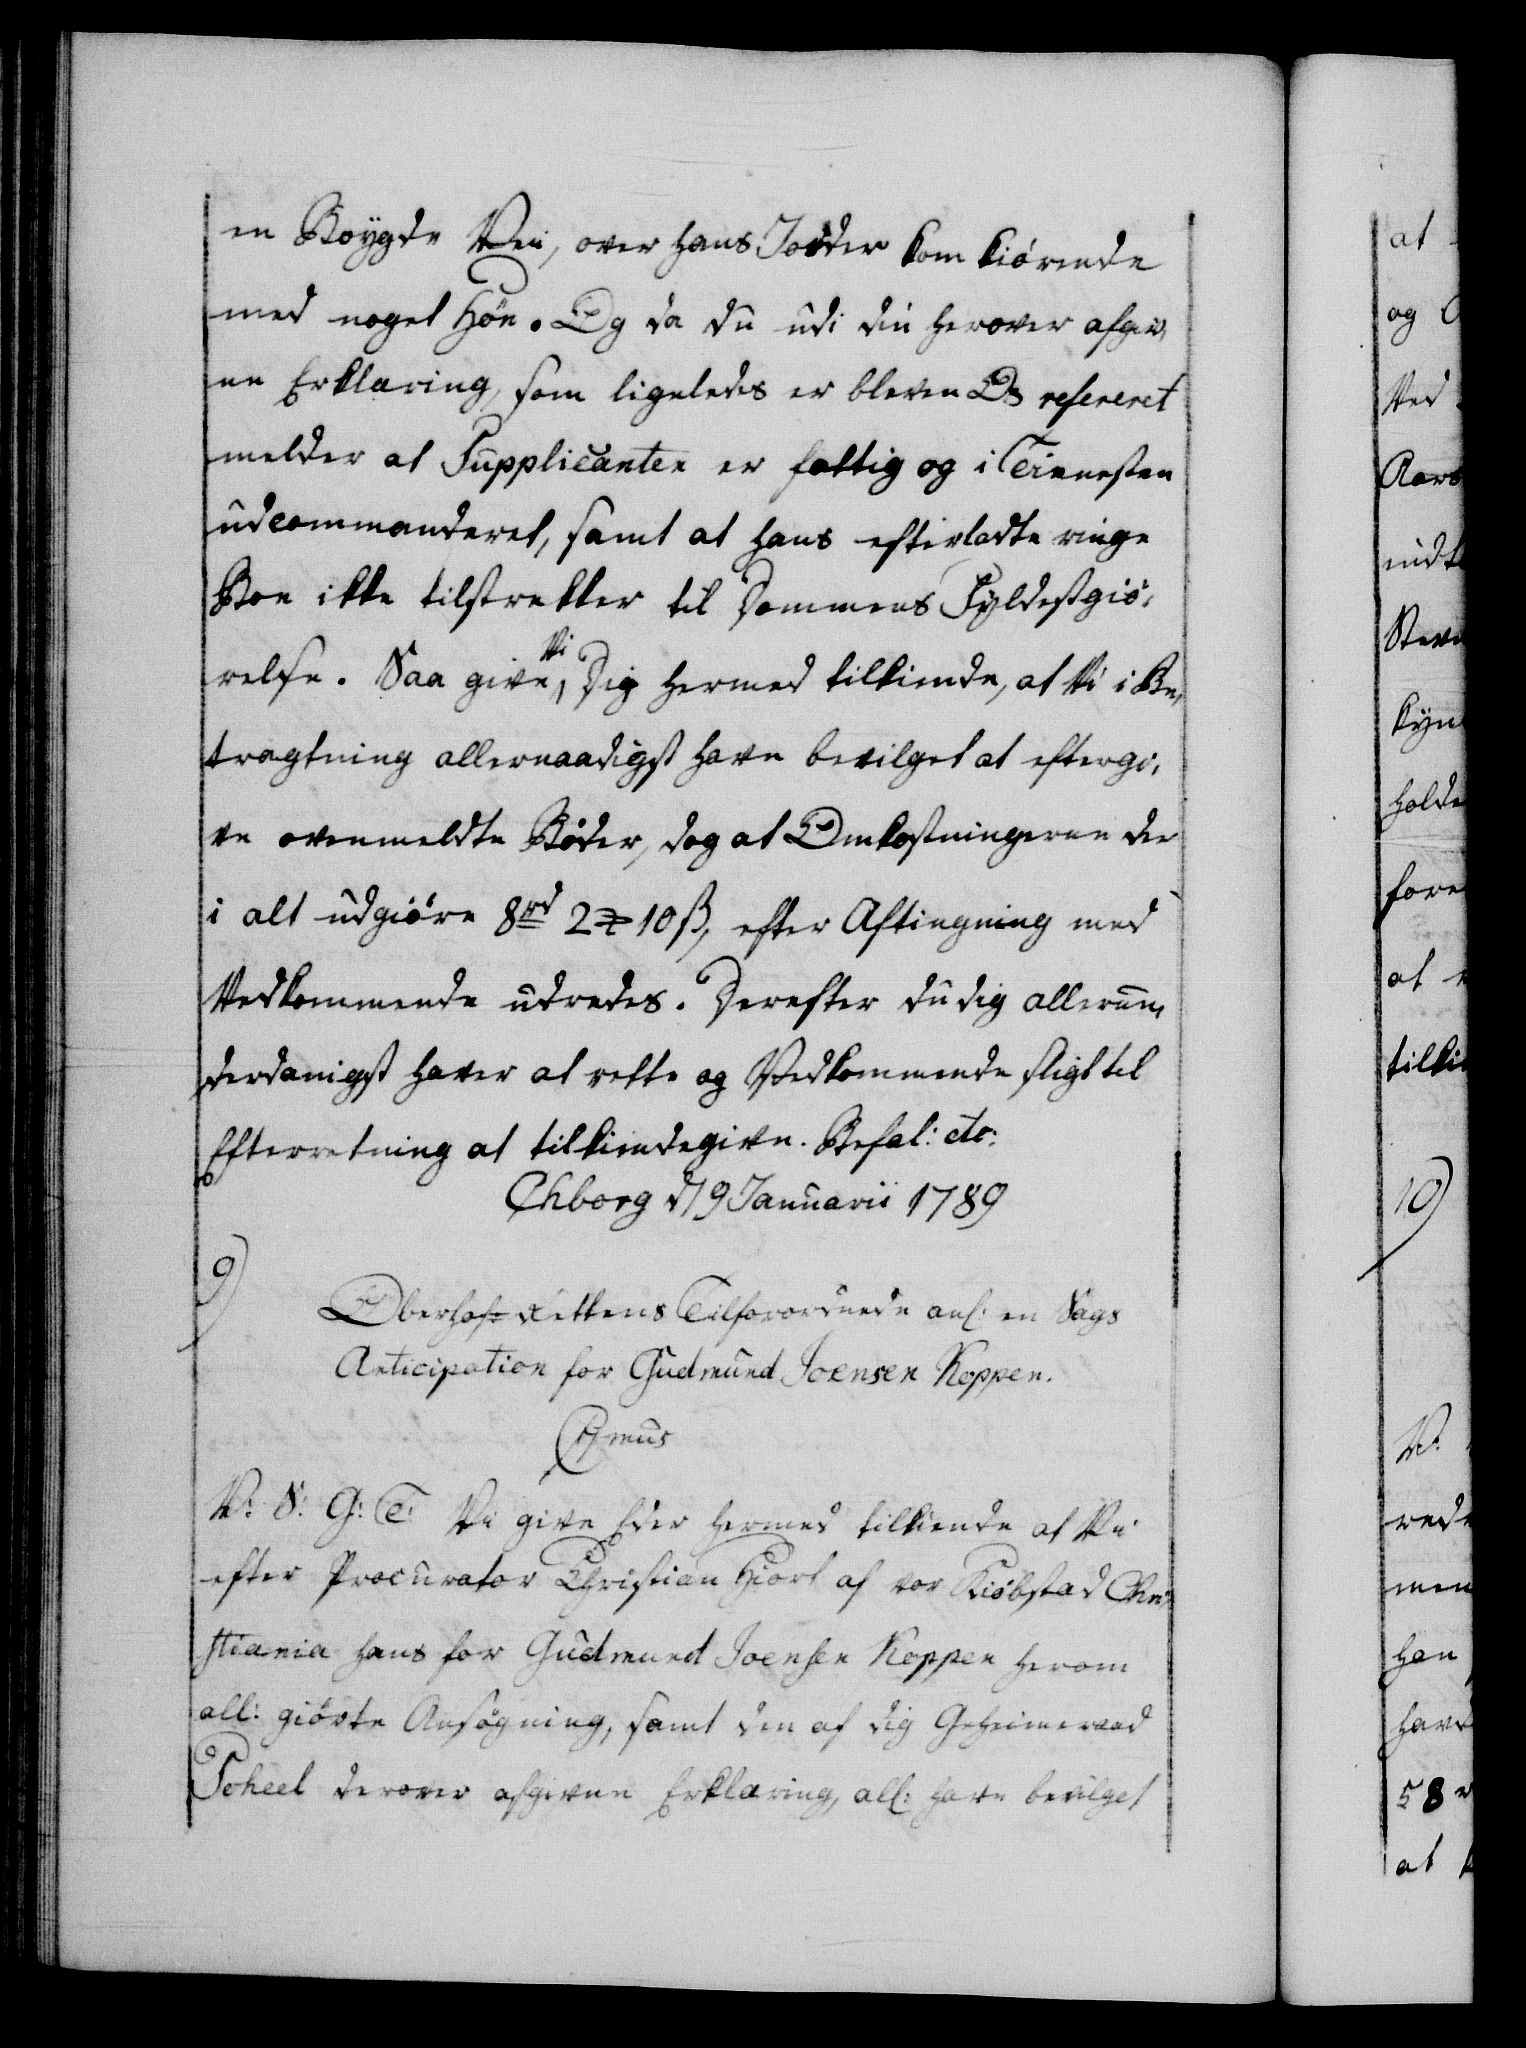 en Bøygde Vei, over hans Jorder kom kiørende
med noget Høe. Og da du udi din herover afgiv,
ne Erklæring, som ligeledes er bleven Os refereret
melder at Supplicanten er fattig og i Tienesten
udcommanderet, samt at hans efterladte ringe
Boe ikke tilstrekker til Dommens Fyldestgiø,
relse. Saa give Vi Dig hermed tilkiende, at Vi i Be,
tragtning allernaadigst have bevilget at eftergi,
ve ovenmeldte Bøder, dog at Omkostningerne der
i alt udgiøre 8 rd 2 # 10 ß, efter Aftingning med
Vedkommende udredes. Derefter du dig allerun,
derdanigst haver at rette og Vedkommende sligt til
Efterretning at tilkiendegive. Befal: etc:
Chborg d 9 Januarii 1789
9)
Oberhof-Rettens Tilforordnede anl: en Sags
Anticipation for Gudmund Joensen Koppen.
V: S: G: T: Vi give Eder hermed tilkiende at Vi
efter Procurator Christian Hiort af vor Kiøbstad Chri,
stiania hans for Gudmund Joensen Koppen herom
all: giørte Ansøgning, samt den af dig Geheimeraad
Scheel derover afgivne Erklæring, all: have bevilget
at
og
Ved
Aars
indt
Steve
kyn
holde
fore
at
tilki
10)
V:
rede
men
han
havd
58
at